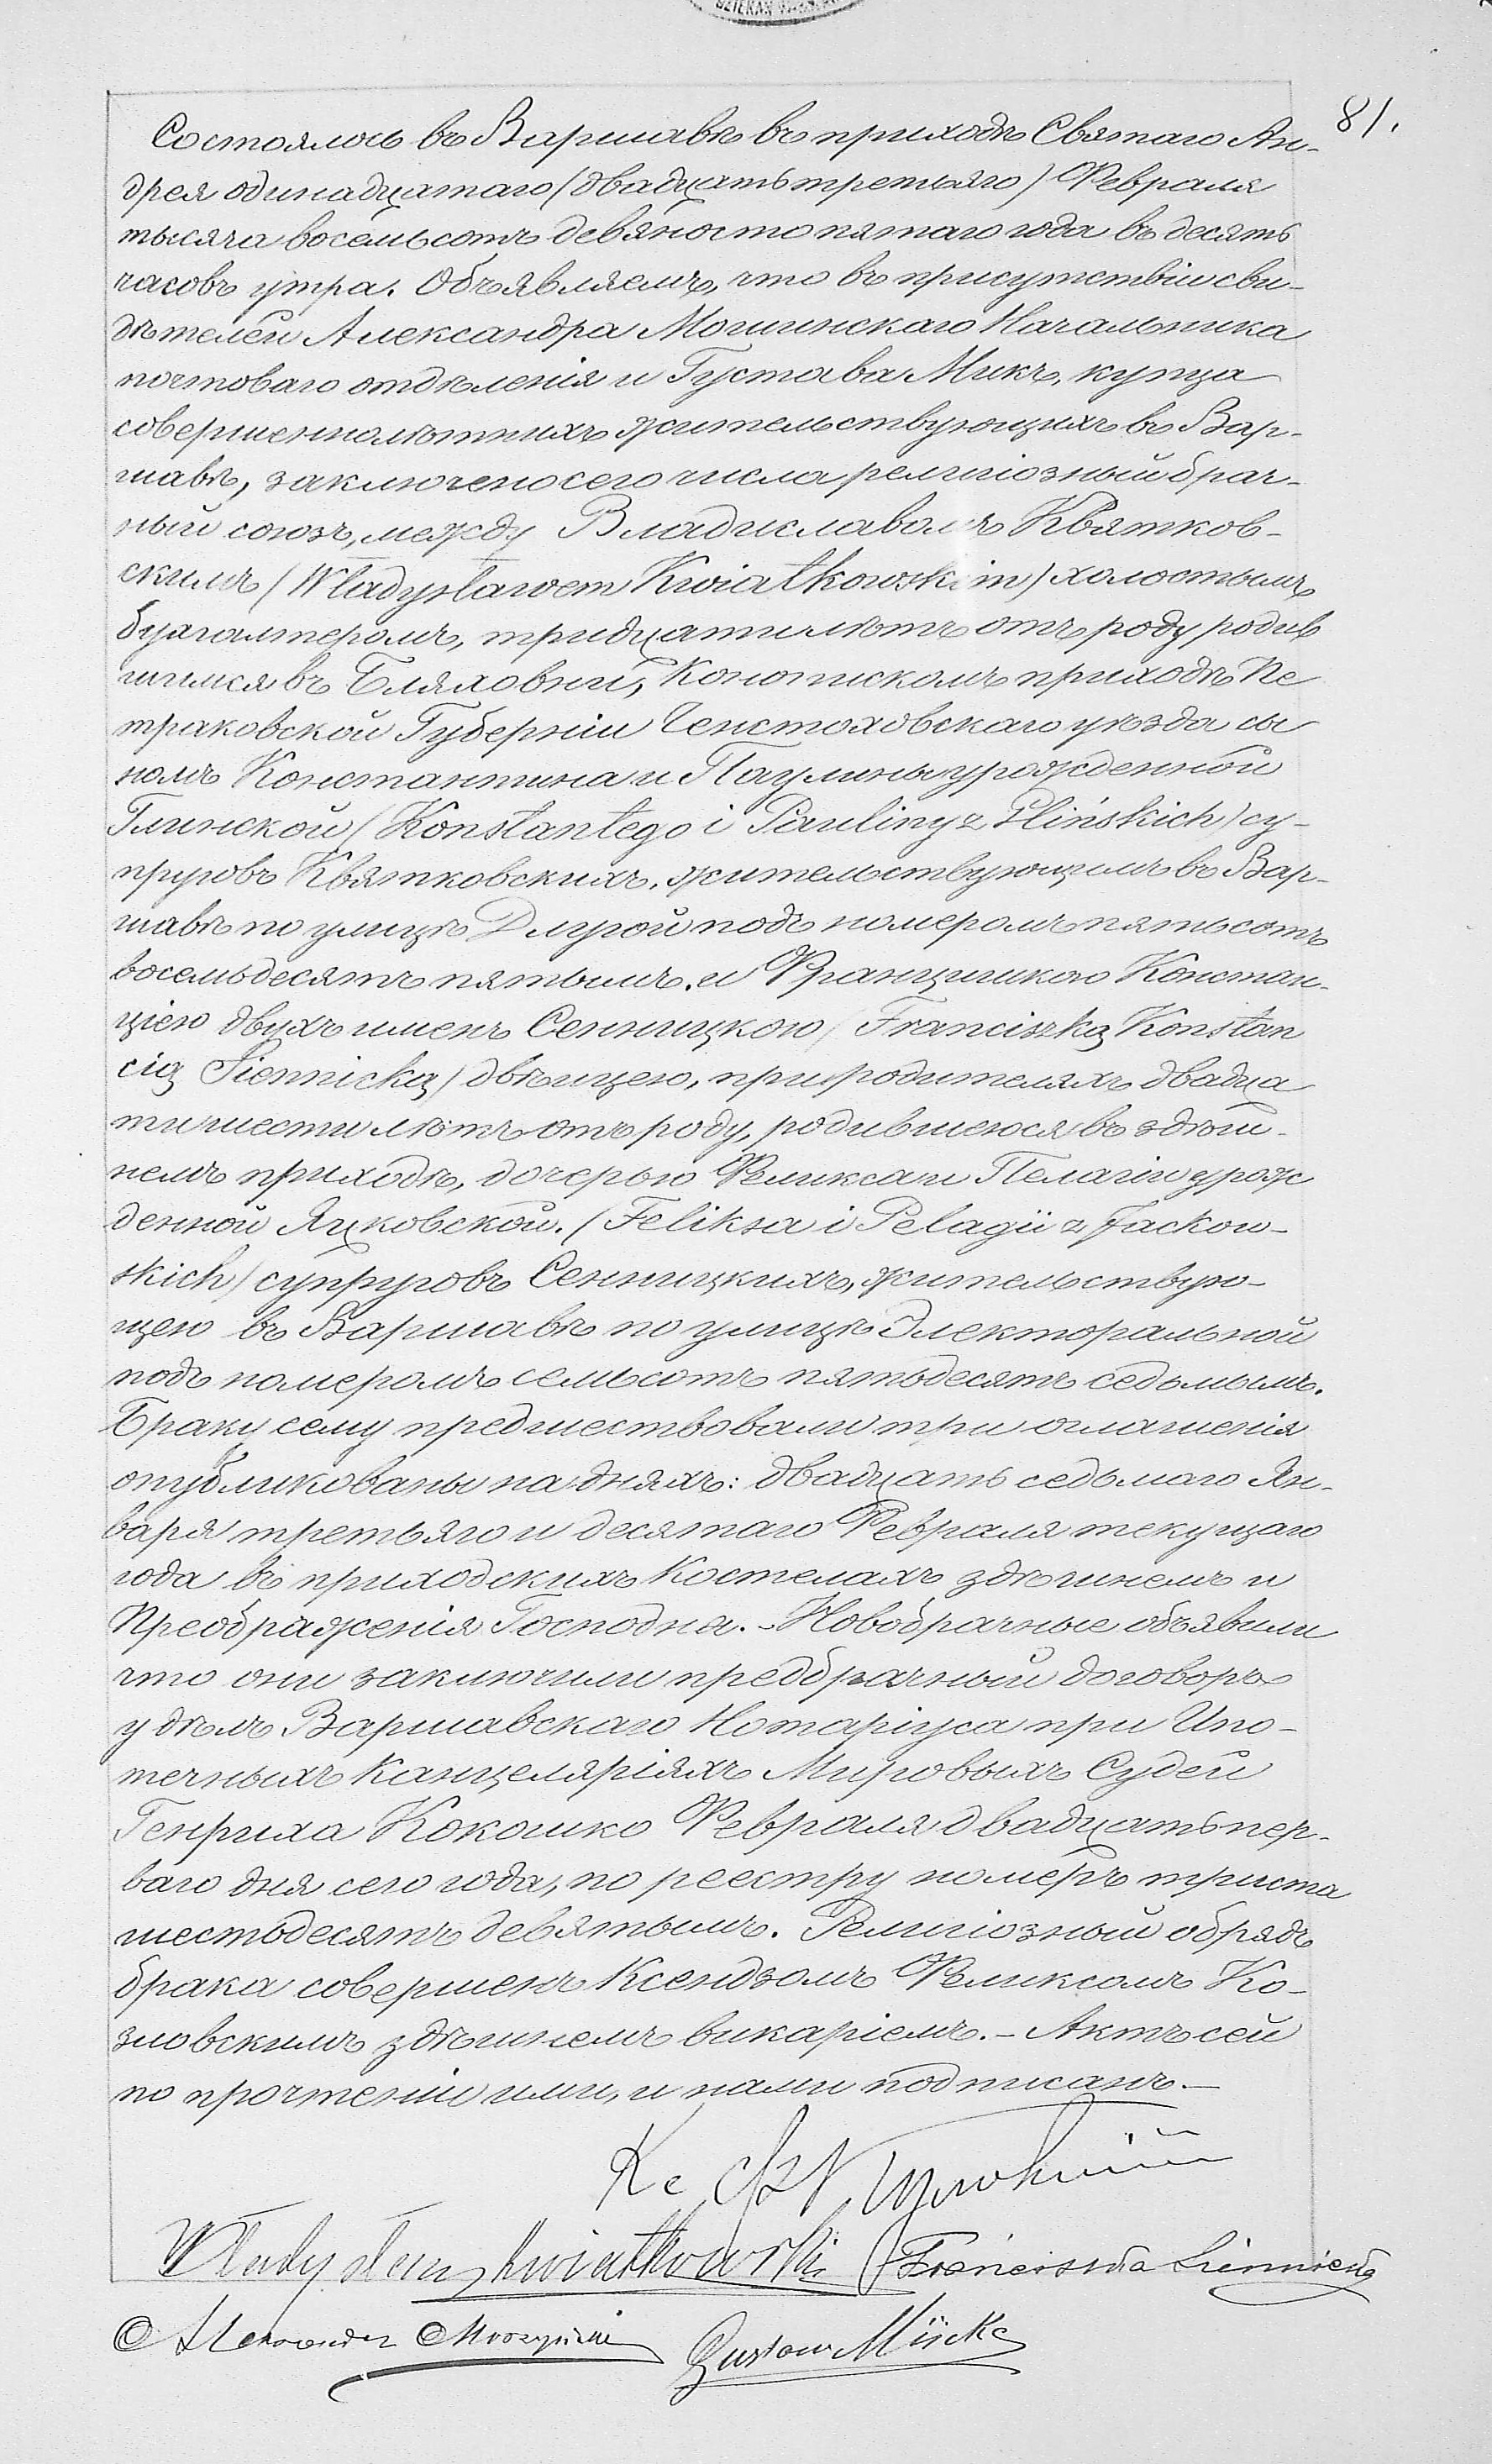 81.
Состоялось въ Варшавѣ въ приходѣ Святаго Ан-
дрея одинадцатаго (двадцать третьяго) Февраля
тысяча восемьсотъ девяносто пятаго года въ десять
часовъ утра. Объявляемъ, что въ присутствіи сви-
дѣтелей Александра Мошинскаго Начальника
почтоваго отдѣленія и Густава Микъ, купца
совершеннолѣтнихъ жительствующихъ въ Вар-
шавѣ, заключено сего числа религіозный брач-
ный союзъ, между Владиславомъ Квятков-
скимъ (Władysławem Kwiatkowskim) холостымъ,
бухгалтеромъ, тридцати лѣтъ отъ роду, родив
шимся въ Бляховни, Конописком приходѣ Пе
траковской Губерніи Ченстоховскаго уѣзда сы
номъ Константина и Паулины урожденной
Глинской (Konstantego i Pauliny z Glińskich) су-
пруговъ Квятковскихъ, жительствующимъ въ Вар-
шавѣ по улицѣ Длугой подъ номеромъ пятьсотъ
восемьдесятъ пятымъ, и Францишкою Констан-
ціею двухъ именъ Сенницкою (Franciszką Konstan
cią Siennicką) дѣвицею, при родителяхъ двадца
ти шести лѣтъ отъ роду, родившеюся въ здѣш-
немъ приходѣ, дочерью Феликса и Пелагіи урож
денной Яцковской. (Feliksa i Pelagii z Jackow-
skich) супруговъ Сенницкихъ, жительствую-
щею въ Варшавѣ по улицѣ Электоральной
подъ номеромъ семьсотъ пятьдесятъ седьмымъ.
Браку сему предшествовали три оглашенія
опубликованы на дняхъ: двадцать седьмаго Ян-
варя третьяго и десятаго Февраля текущаго
года въ приходскихъ костелахъ здѣшнемъ и
Преображенія Господня. - Новобрачные объявили
что они заключили предбрачный договоръ
у дѣлъ Варшавскаго Нотаріуса при Ипо-
течныхъ Канцеляріяхъ Мировыхъ Судей
Генриха Кокошко Февраля двадцать пер-
ваго дня сего года, по реестру номеръ триста
шестьдесятъ девятымъ. Религіозный обрядъ
брака совершенъ Ксендзомъ Феликсомъ Ко-
зловскимъ здѣшнемъ викаріемъ. - Актъ сей
по прочтеніи ими, и нами подписанъ. -
Władysław Kwiatkowski Franciszka Siennicka
Alexander Moszyński Gustaw Mücke